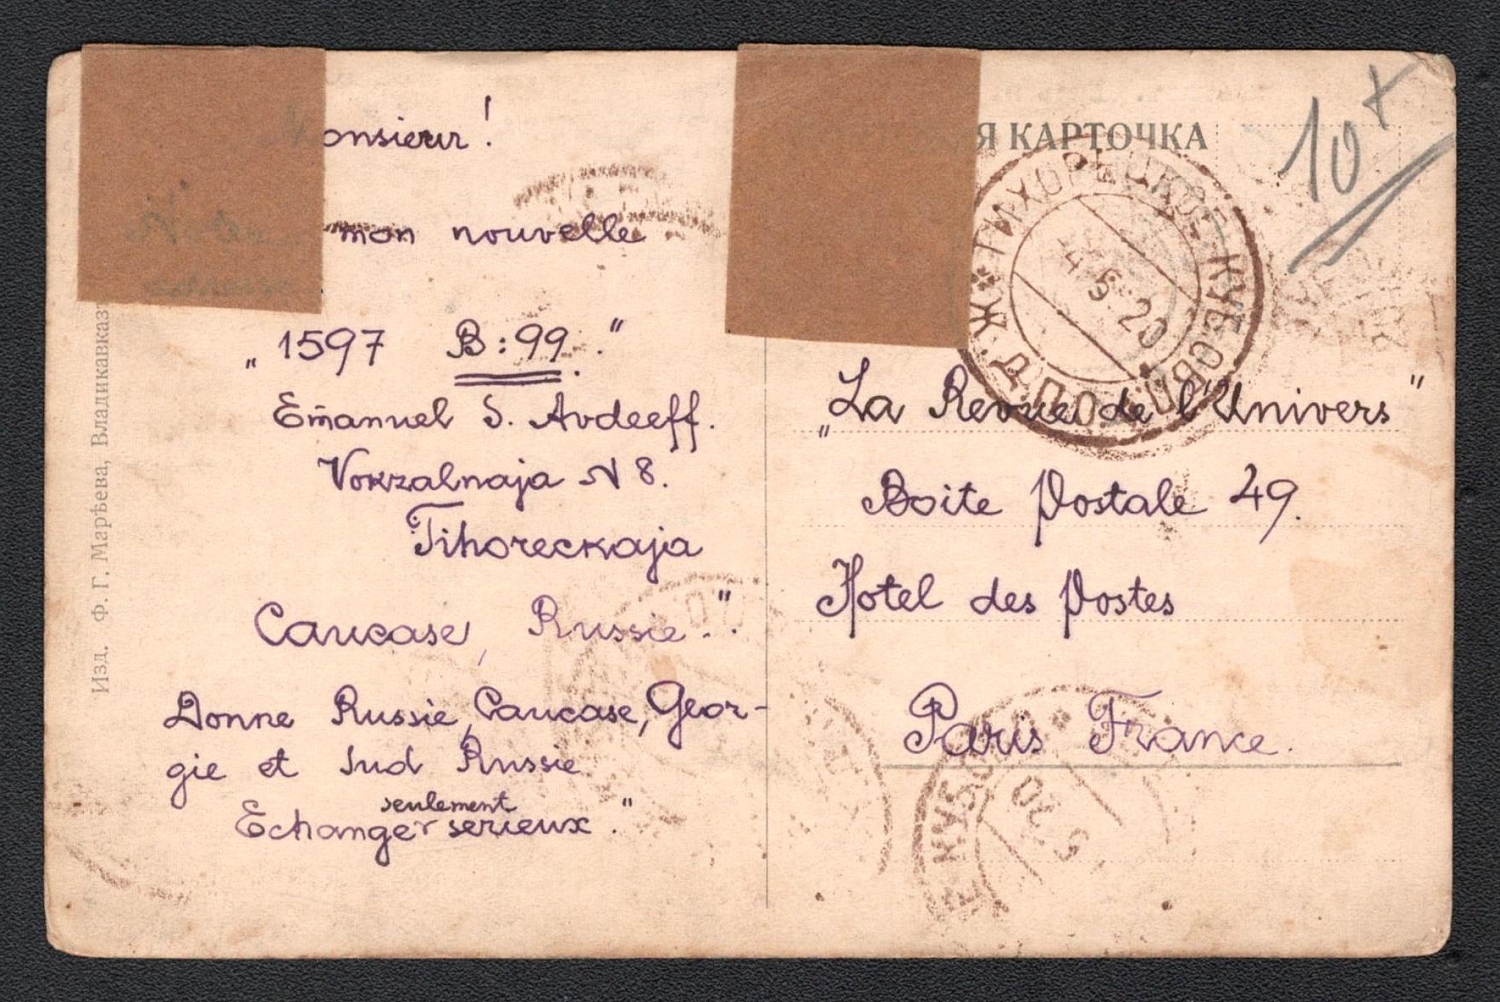 Monsieur!
Notez mon nouvelle
adresse.
„1597 B:99."
Emanuel S. Avdeeff.
Vokzalnaja N 8.
Tihoreckaja
Caucase, Russie."
Donne Russie, Caucase, Geor-
gie et Sud Russie
seulement
Echanger serieux."
Изд. Ф. Г. Марѣева, Владикавказ
Я КАРТОЧКА
10
ТИХОРѢЦКОЕ-КУБ. ОБЛ.
4.5.20
„La Revue de l'Univers"
Boite Postale 49.
Hotel des Postes
Paris France.
5 20